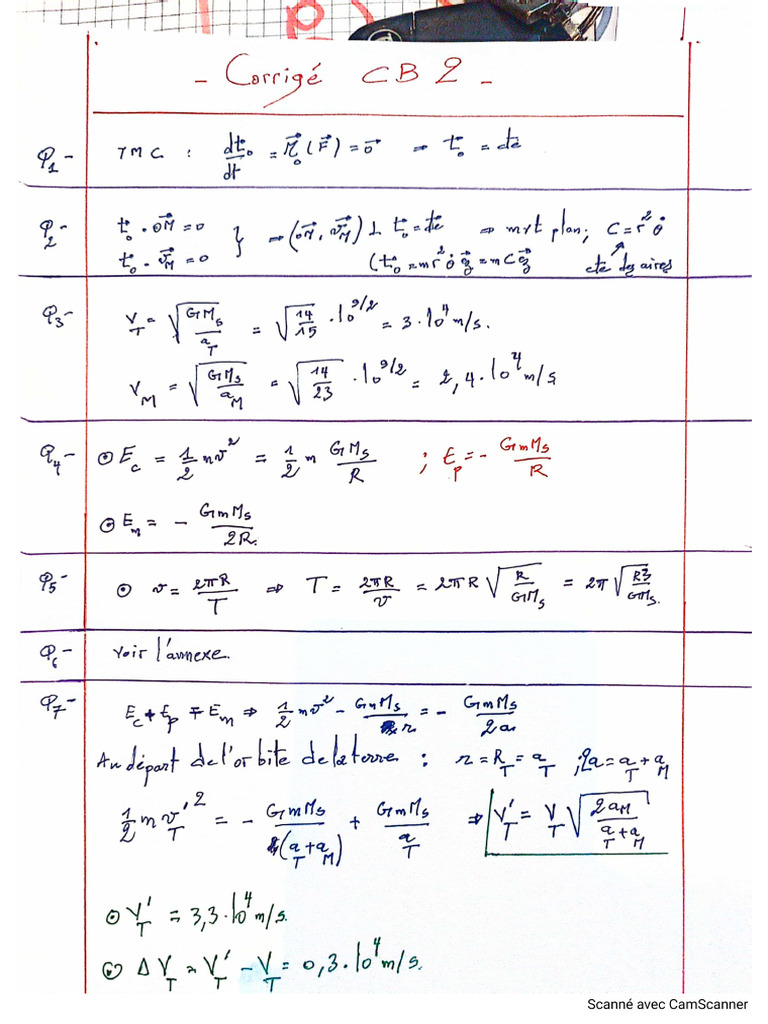 - Corrigé CB2 -
Q1- TMC : dt₀/dt = M₀(F) = 0 → t₀ = cte
Q2- t₀ · OM = 0
t₀ · v_M = 0 } → (OM, v_M) ⊥ t₀ = cte ⇒ mvt plan; C = r²θ̇
(t₀ = mr²θ̇ z = mC z cte des aires
Q3- V_T = √(GM_s/a_T) = √(14/15) · 10^(9/2) = 3·10⁴ m/s.
V_M = √(GM_s/a_M) = √(14/23) · 10^(9/2) = 2,4·10⁴ m/s
Q4- ⊙ E_c = 1/2 mv² = 1/2 m GM_s/R ; E_p = - GmM_s/R
⊙ E_m = - GmM_s/2R.
Q5- ⊙ v = 2πR/T ⇒ T = 2πR/v = 2πR √(R/GM_s) = 2π √(R³/GM_s).
Q6- Voir l'annexe.
Q7- E_c + E_p = E_m ⇒ 1/2 mv² - GmM_s/r = - GmM_s/2a
Au départ de l'orbite de la terre : r = R_T = a_T ; 2a = a_T + a_M
1/2 m v'_T² = - GmM_s/(a_T + a_M) + GmM_s/a_T ⇒ V'_T = V_T √(2a_M/(a_T + a_M))
⊙ V'_T = 3,3·10⁴ m/s.
⊙ ΔV_T = V'_T - V_T = 0,3·10⁴ m/s.
Scanné avec CamScanner